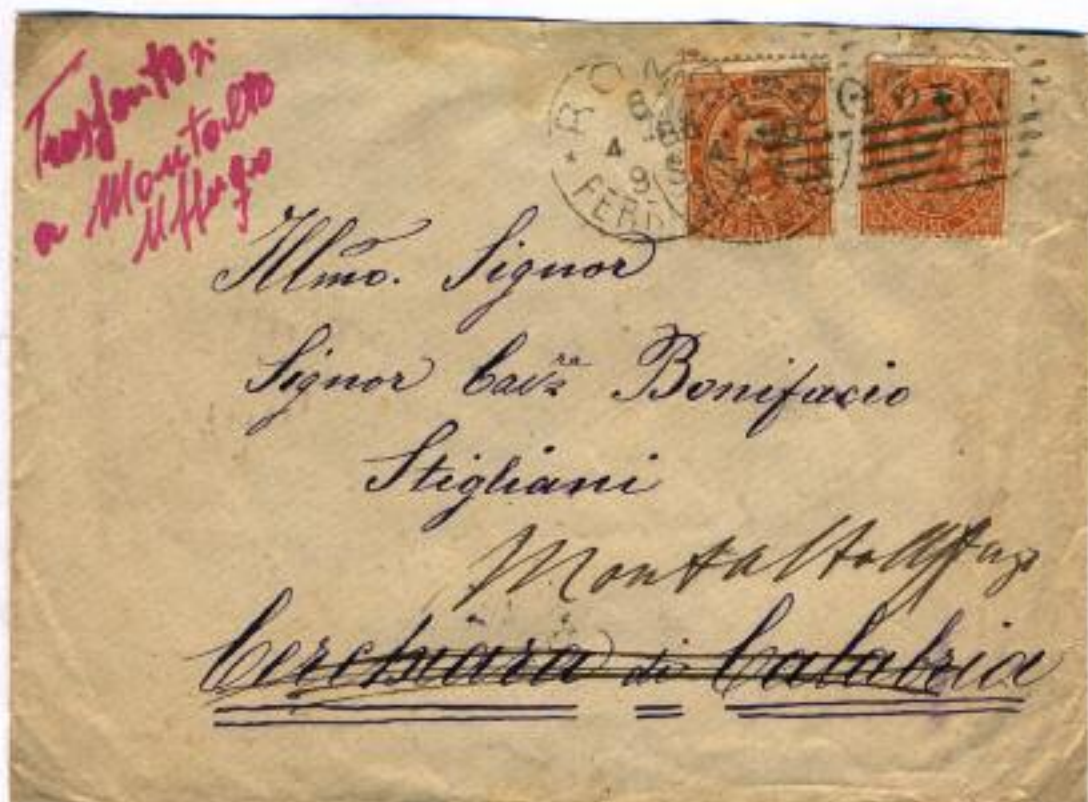 Trasferitosi
a Montalto
Uffugo
ROMA
6
4
9
FERROVIA
Illmo. Signor
Signor Cavre Bonifacio
Stigliani
Montalto Uffugo
Cerchiara di Calabria